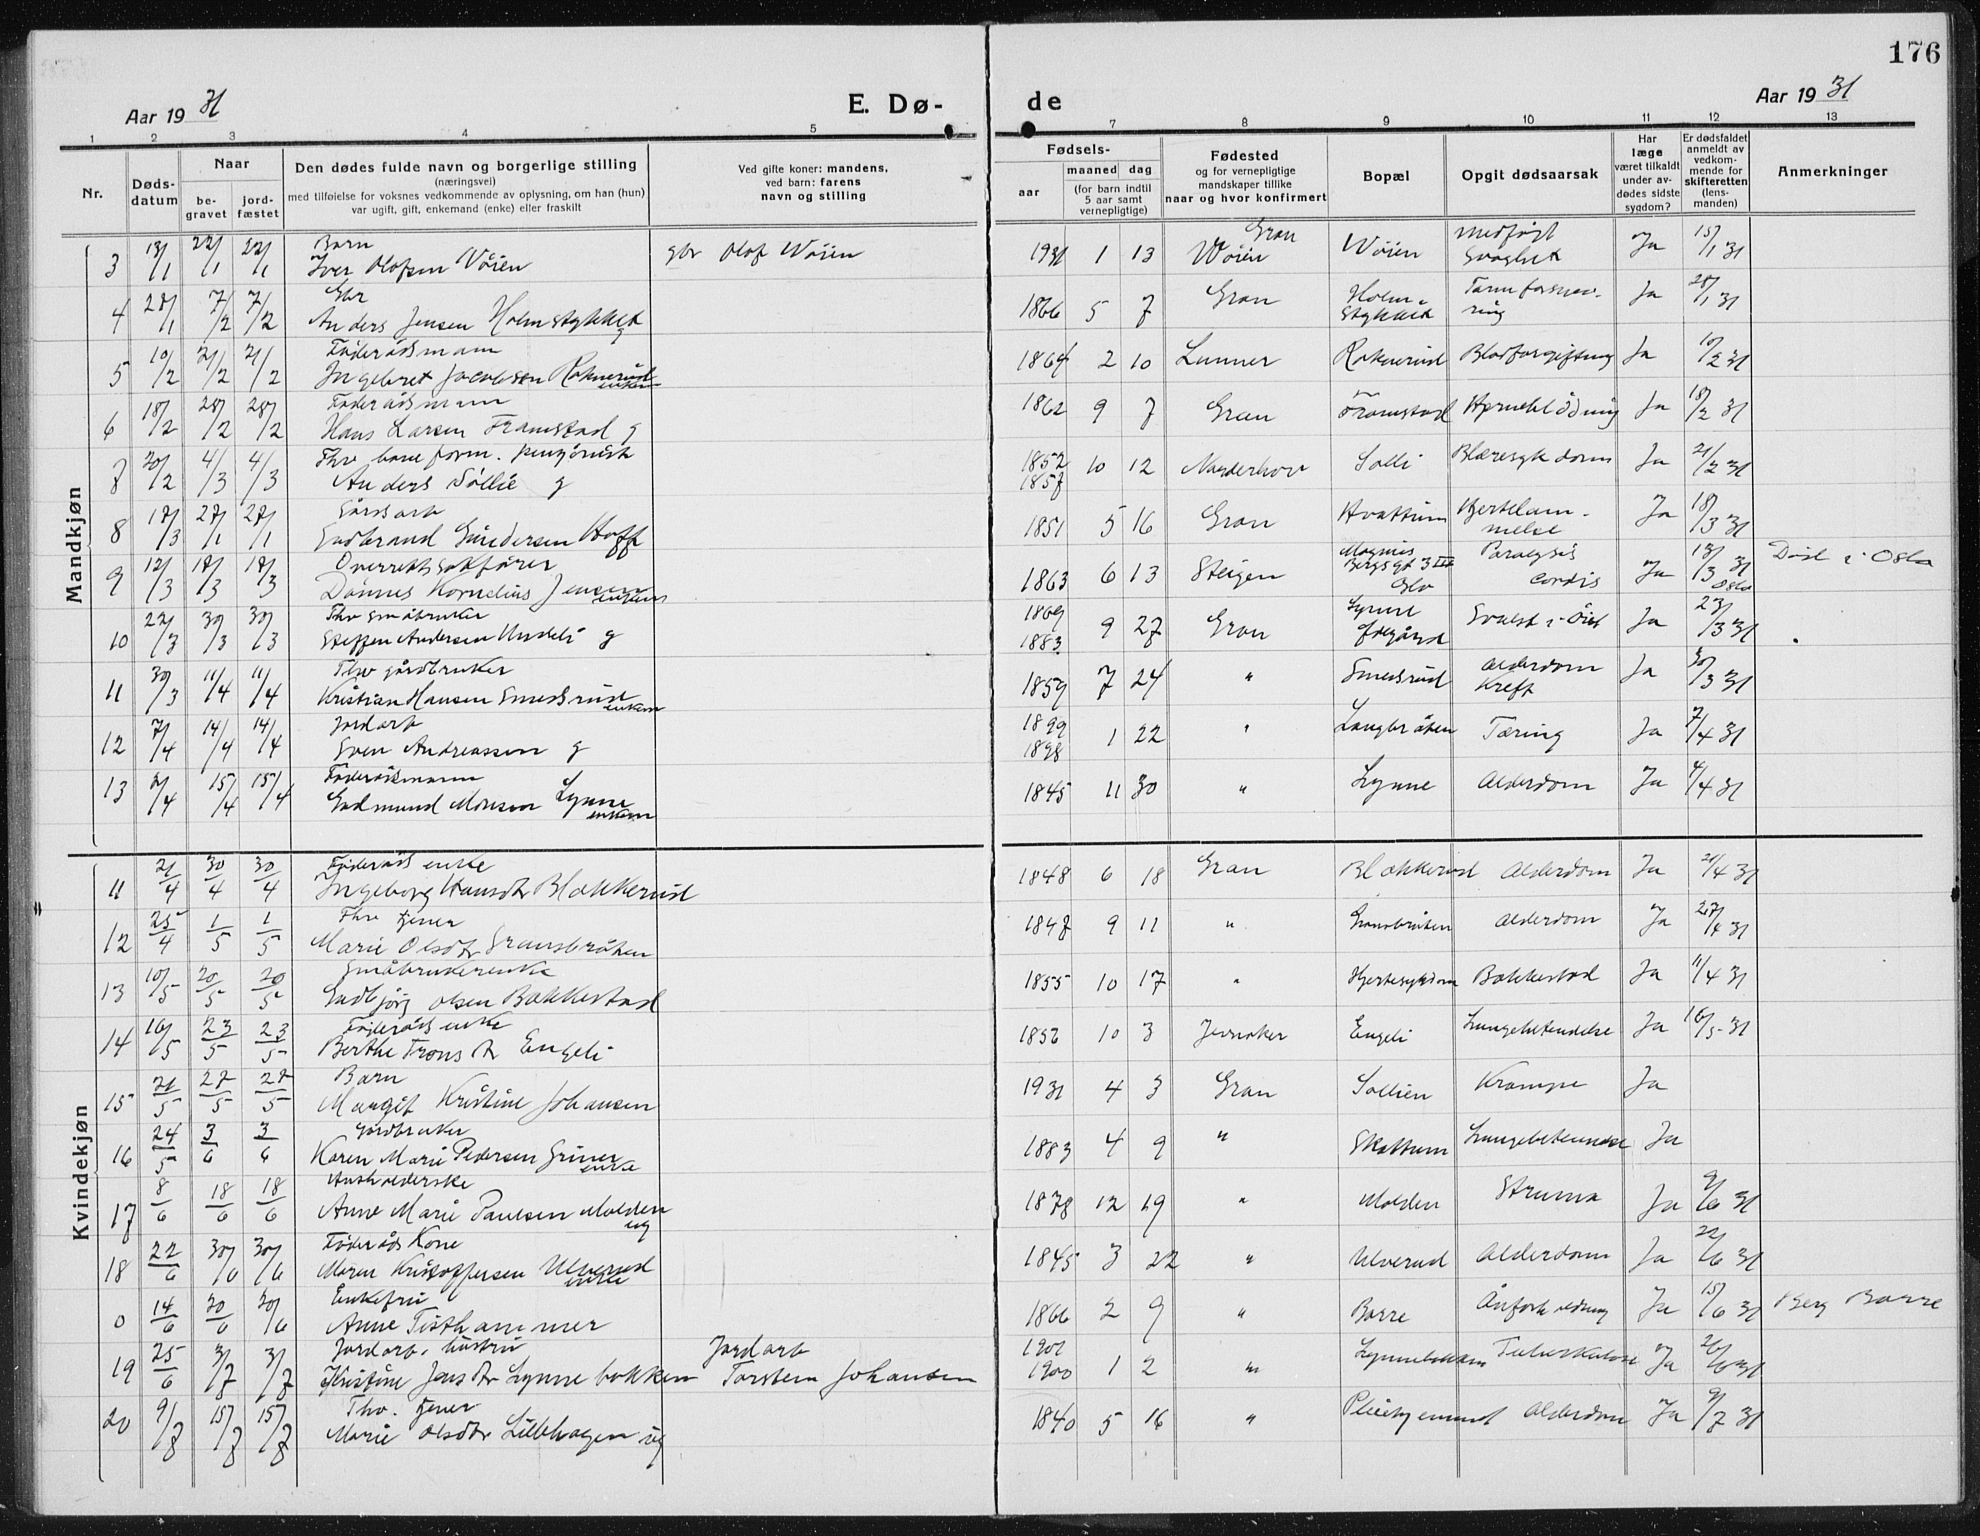 176
Aar 19 31
E. Dø-
de
Aar 19 31
1 2 3 4 5 7 8 9 10 11 12 13
Nr.
Døds-
datum
Naar
be-
gravet
jord-
fæstet
Den dødes fulde navn og borgerlige stilling
(næringsvei)
med tilføielse for voksnes vedkommende av oplysning, om han (hun)
var ugift, gift, enkemand (enke) eller fraskilt
Ved gifte koner: mandens,
ved barn: farens
navn og stilling
Fødsels-
aar
maaned dag
(for barn indtil
5 aar samt
vernepligtige)
Fødested
og for vernepligtige
mandskaper tillike
naar og hvor konfirmert
Bopæl
Opgit dødsaarsak
Har
læge
været tilkaldt
under av-
dødes sidste
sygdom?
Er dødsfaldet
anmeldt av
vedkom-
mende for
skifteretten
(lens-
manden)
Anmerkninger
Mandkjøn
Barn Gran medføgt
3 13/1 22/1 22/1 Iver Olofsen Vöien gbr Olof Wöien 1931 1 13 Wöien Wöien Svaghet Ja 15/1 31
Gbr
4 28/1 7/2 7/2 Anders Jensen Holmstykket g 1866 5 7 Gran Holm- stykket Tarmforsnev- ring Ja 28/1 31
Föderådsmann
5 10/2 21/2 21/2 Ingebret Jacobsen Roknerud enkem 1864 2 10 Lunner Roknerud Blodforgiftning Ja 10/2 31
Föderådsmann
6 18/2 28/2 28/2 Hans Larsen Framstad g 1862 9 7 Gran Framstad Hjerneblödning Ja 18/2 31
Fhv baneform. pensjonist
7 20/2 4/3 4/3 Anders Söllie g 1852 1857 10 12 Norderhov Solli Blæresykdom Ja 21/2 31
Gårdsarb
8 17/3 27/1 27/1 Gudbrand Gundersen Hoff 1851 5 16 Gran Hvattum Hjertelam- melse Ja 18/3 31
Overrettssakfører
9 12/3 18/3 18/3 Dönnes Kornelius Jensen enkem 1863 6 13 Steigen Magnus Bergs gt 3 III Oslo Paralysis cordis Ja 13/3 31 Oslo Död i Oslo
Fhv småbruker
10 22/3 30/3 30/3 Steffen Andersen Undeli g 1869 1883 9 27 Gran Lynne Ödegård Svulst i Öiet Ja 23/3 31
Fhv gårdbruker
11 30/3 11/4 11/4 Kristian Hansen Smedsrud enkem 1859 7 24 " Smedsrud Alderdom Kreft Ja 30/3 31
Jordarb
12 7/4 14/4 14/4 Sven Andreassen g 1899 1898 1 22 " Langbråten Tæring Ja 7/4 31
Föderådsmann
13 15/4 15/4 Gudmund Monsen Lynne enkem 1845 11 30 " Lynne Alderdom Ja 31
Kvindekjøn
Föderåds enke
11 21/4 30/4 30/4 Ingeborg Hansdtr Blakkerud 1848 6 18 Gran Blakkerud Alderdom Ja 21/4 31
Fhv tjener
12 25/4 1/5 1/5 Marie Olsdtr Gransbråten 1847 9 11 " Gransbråten Alderdom Ja 27/4 31
Småbrukerenke
13 10/5 20/5 20/5 Gudbjörg Olsen Bakkestad 1855 10 17 " Hjertesykdom Bakkestad Ja 11/4 31
Föderåds enke
14 16/5 23/5 23/5 Berthe Tronsdtr Engeli 1856 10 3 Jevnaker Engeli Lungebetendelse Ja 16/5 31
Barn
15 21/5 27/5 27/5 Margit Kristine Johansen 1931 4 3 Gran Sollien Krampe Ja
Jordbruker
16 24/5 3/6 3/6 Karen Marie Pedersen Griner enke 1883 4 9 " Skattum Lungebetennelse Ja
Husholderske
17 8/6 18/6 18/6 Anne Marie Paulsen Molden ug 1878 12 19 " Molden Struma Ja 9/6 31
Föderåds Kone
18 22/6 30/6 30/6 Maren Kristoffersen Ulverud enke 1845 3 22 " Ulverud Alderdom Ja 22/6 31
Enkefru
0 14/6 20/6 20/6 Anne Tisthammer 1866 2 9 " Borre Åreforkalkning Ja 15/6 31 Berg Borre
Jordarb. hustru Jordarb
19 25/6 3/7 3/7 Kristine Jensdtr Lynnebakken Torstein Johansen 1901 1900 1 2 " Lynnebakken Tuberkulose Ja 26/6 31
Fhv. tjener
20 9/7 15/7 15/7 Marie Olsdtr Lillehagen ug 1840 5 16 " Pleiehjemmet Alderdom Ja 9/7 31